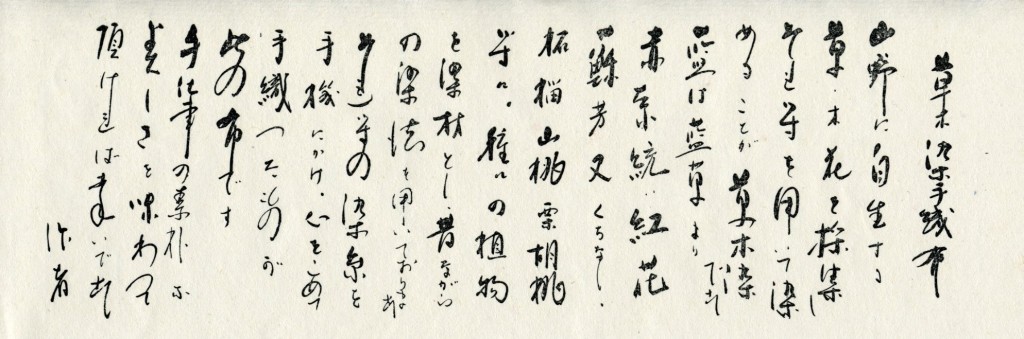 草木染手織布
山野に自生する
草・木・花を採集し
それ等を用いて染
めることが草木染です
藍は藍草より
赤系統は紅花
蘇芳又くちなし・
柘榴山桃栗胡桃
等々。種々の植物
を染材とし、昔ながら
の染法を用いております
それ等の染糸を
手機にかけ、心をこめて
手織つたのが
此の布です
手仕事の素朴な
美しさを味わって
頂ければ幸いです
作者